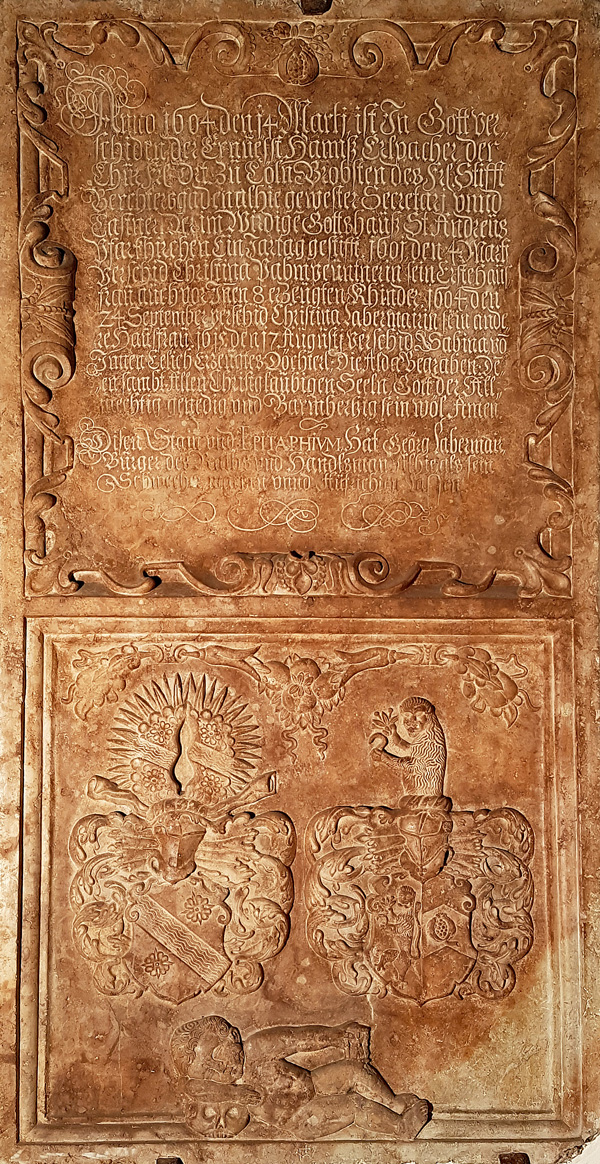 Anno 1604 den 14 Martj ist In Gott ver,
schiden der Ernuesst Hannß Erlpacher der
Chur Frl: Drt: Zu Cöln Brobsten des Frl: Stifft
Berchtersgaden alhie gewester Secretarj vnnd
Casstner Der im Wirdige Gottshauß St: Andreas
Pfarkhirchen Ein Jartag gestifft, 1601 den 4 Martj
verschid Christina sein Erste Hauß
frau, auch vor Inen 8 erzeugten Khinder, 1604 den
24 September verschid Christina Labermairin sein ande
re Haußfrau, 1615 den 17 Augusti verschid Sabina vō
Innen Eelich Erzeugtes Döchterl: Die Alda Begraben, De,
nen sambt Allen Christglaubigen Seeln, Gott der All,
mechtig genedig vnd Barmhertzig sein wol Amen
Disen Stain vnd EPITAPHIVM, Hat Georg Labermair
Burger des Raths vnd Handlsman Alhie als sein
Schwecher machen vnnd Aufrichten lassen